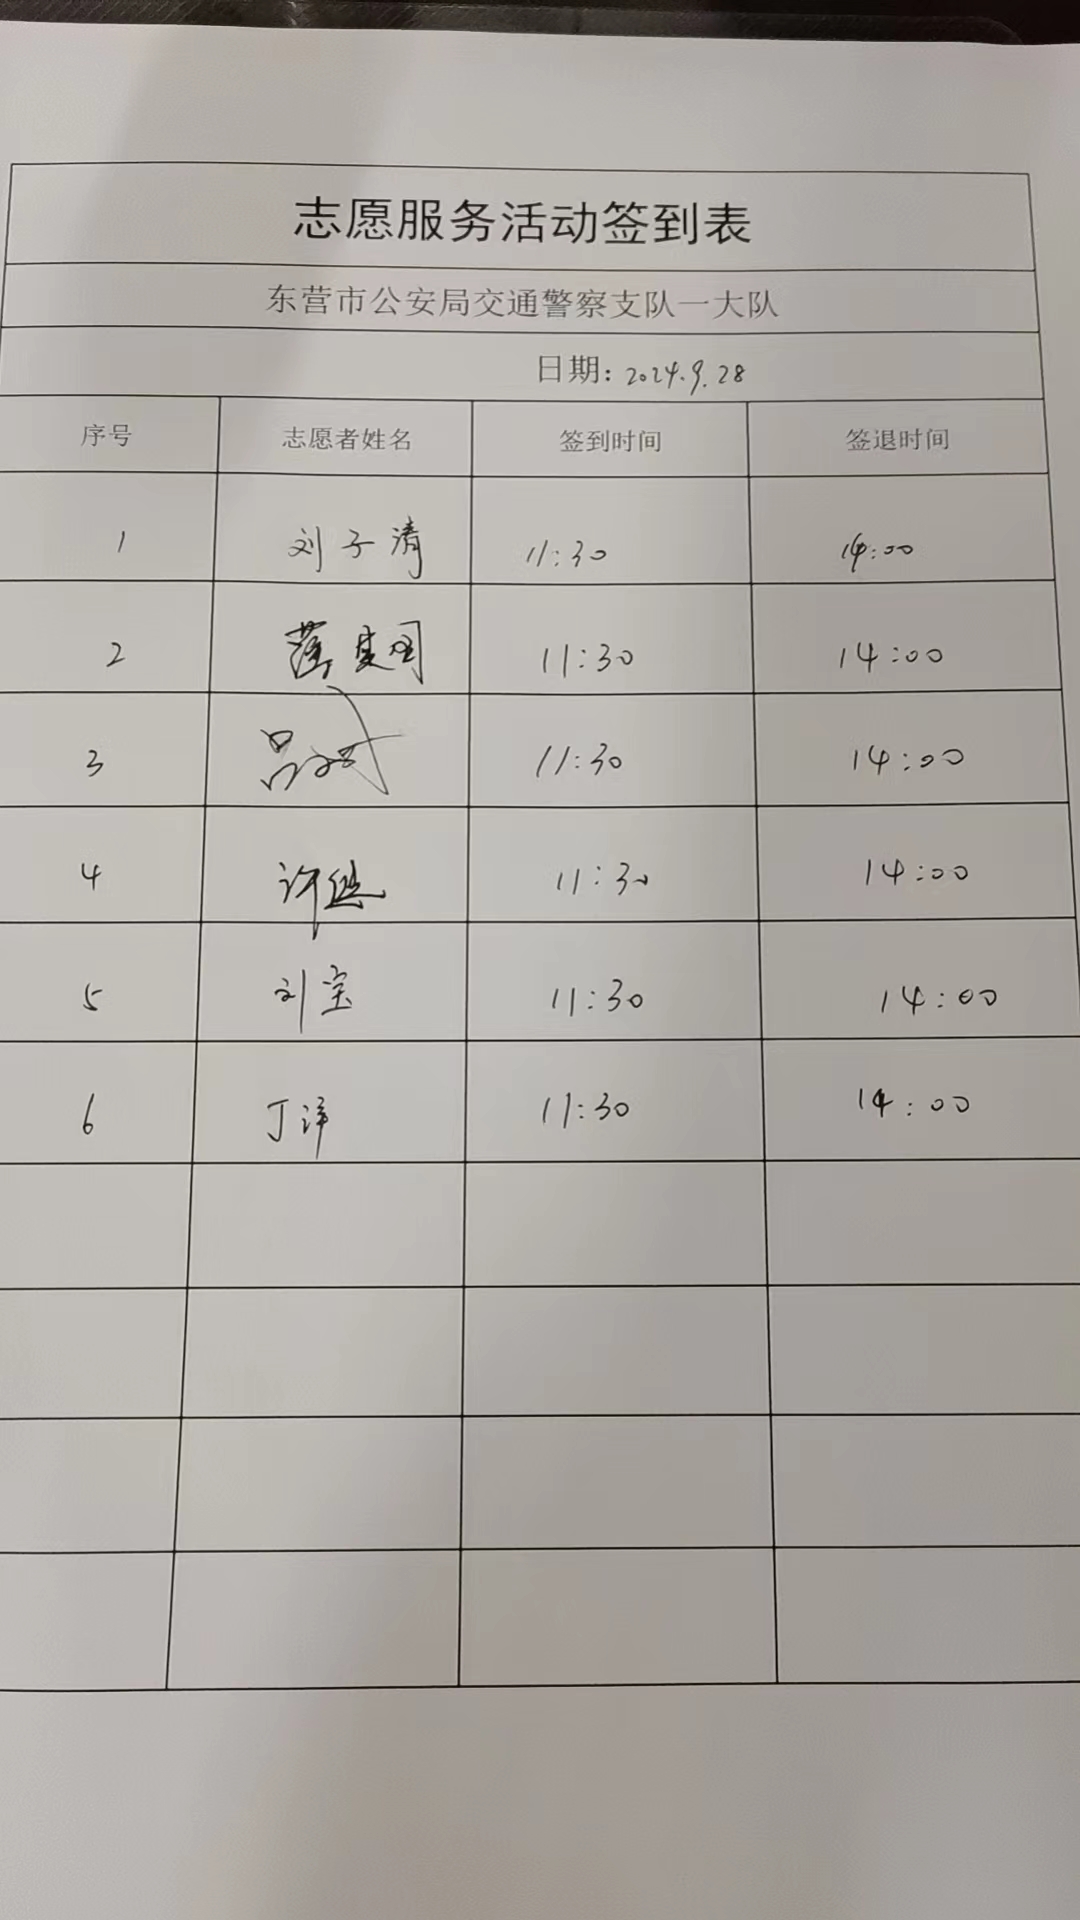 志愿服务活动签到表
东营市公安局交通警察支队一大队
日期：2024.9.28
序号 志愿者姓名 签到时间 签退时间
1 刘子清 11:30 14:00
2 11:30 14:00
3 吕 11:30 14:00
4 许 11:30 14:00
5 刘宝 11:30 14:00
6 丁洋 11:30 14:00